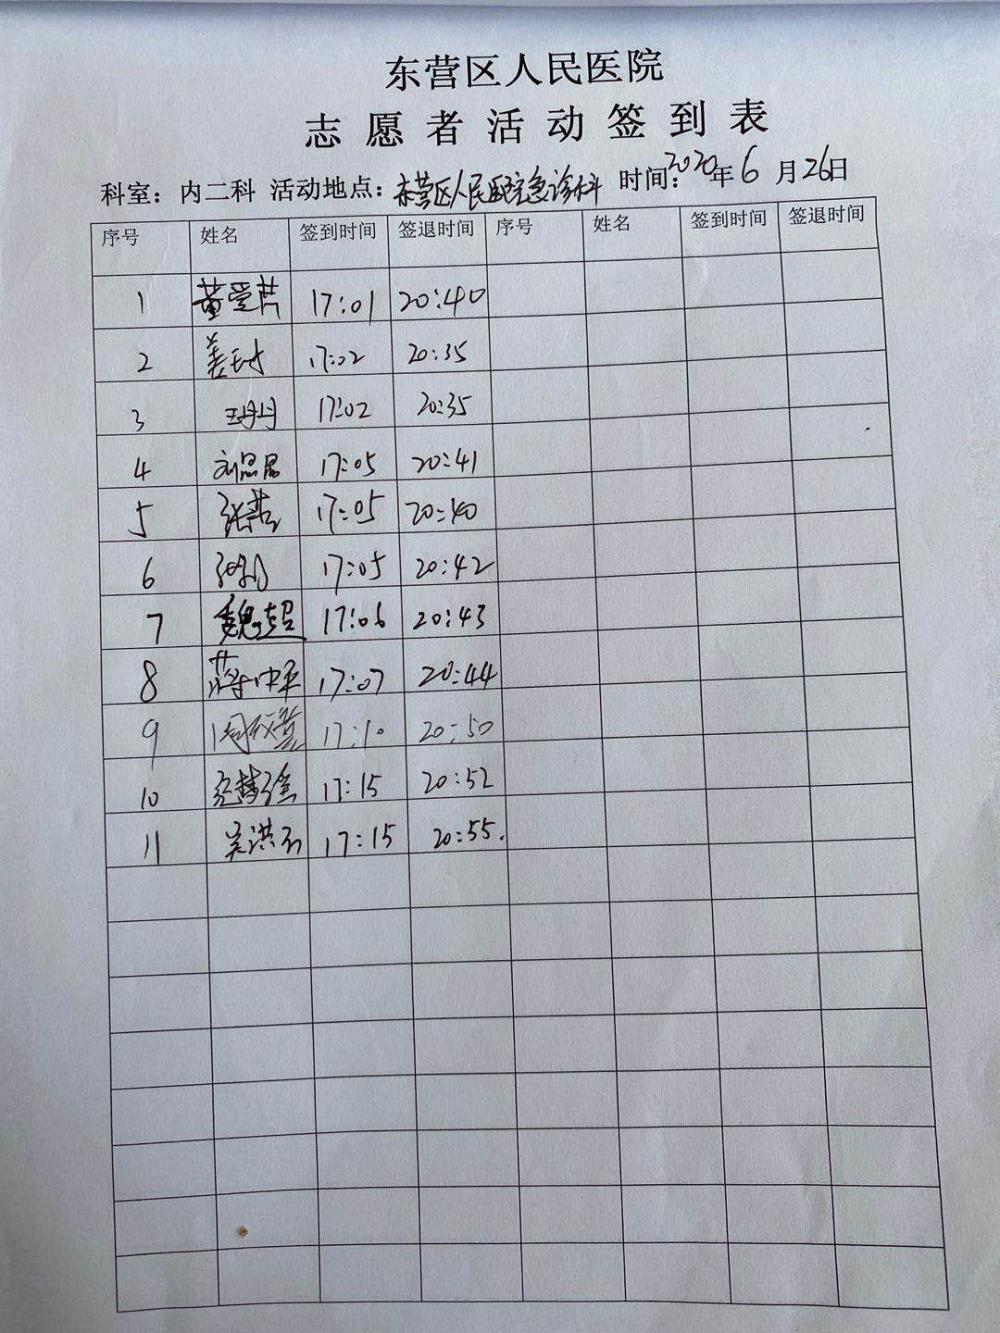 东营区人民医院
志愿者活动签到表
科室：内二科 活动地点：东营区人民医院急诊科 时间：2020年6月26日
序号 姓名 签到时间 签退时间 序号 姓名 签到时间 签退时间
1 董爱芹 17:01 20:40
2 17:02 20:35
3 王丹丹 17:02 20:35
4 刘思君 17:05 20:41
5 张 17:05 20:40
6 17:05 20:42
7 魏超 17:06 20:43
8 蒋中平 17:07 20:44
9 周 17:10 20:50
10 17:15 20:52
11 吴洪石 17:15 20:55.